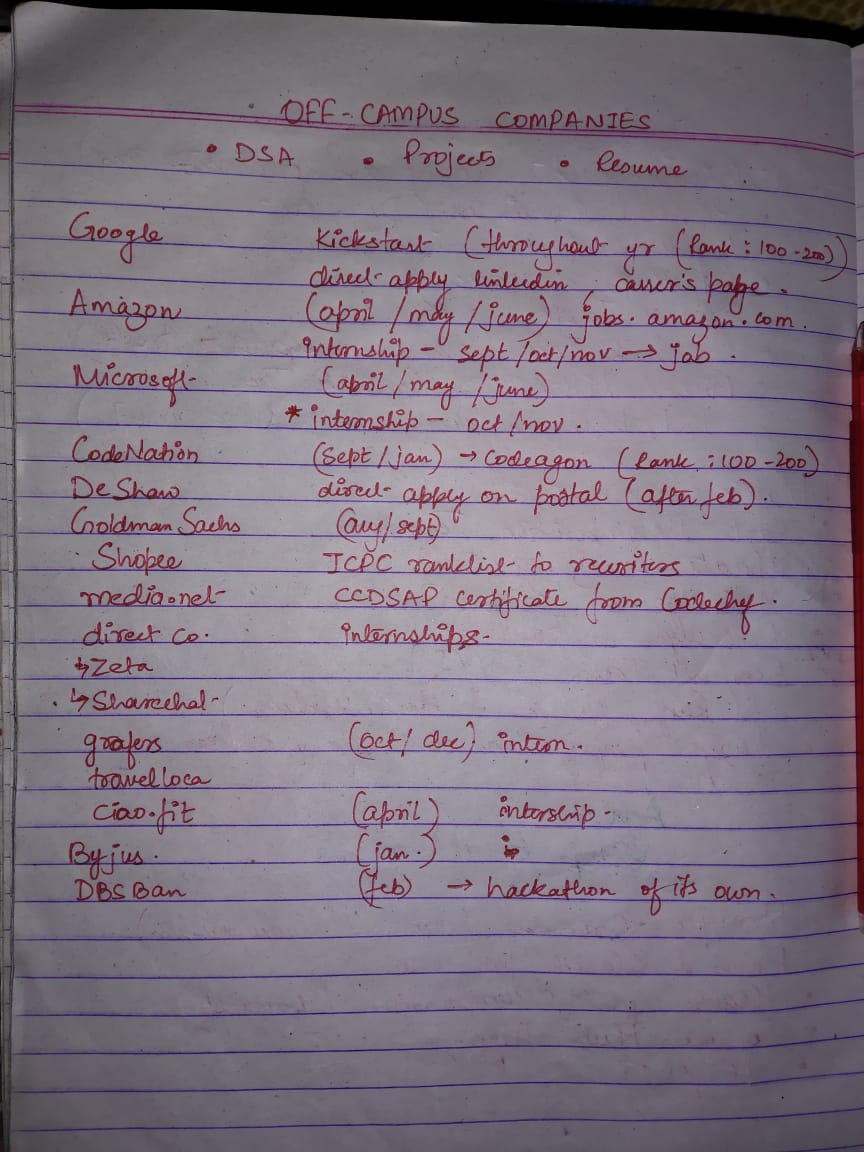 OFF-CAMPUS COMPANIES
• DSA • Projects • Resume
Google Kickstart (throughout yr (Rank : 100-200))
direct apply linkedin, career's page.
Amazon (april / may / june) jobs.amazon.com.
internship - sept/oct/nov → job.
Microsoft (april / may / june)
* internship - oct/nov.
CodeNation (Sept/jan) → Codeagon (Rank : 100-200)
DeShaw direct apply on portal (after feb).
Goldman Sachs (aug/sept)
Shopee ICPC ranklist to recruiters
media.net CCDSAP certificate from Codechef.
direct co. internships-
↳ Zeta
↳ Sharechat
grofers (oct/ dec) intern.
travelloca
Ciao.fit (april) intership -
Byjus. (jan.)
DBS Ban (feb) → hackathon of its own.